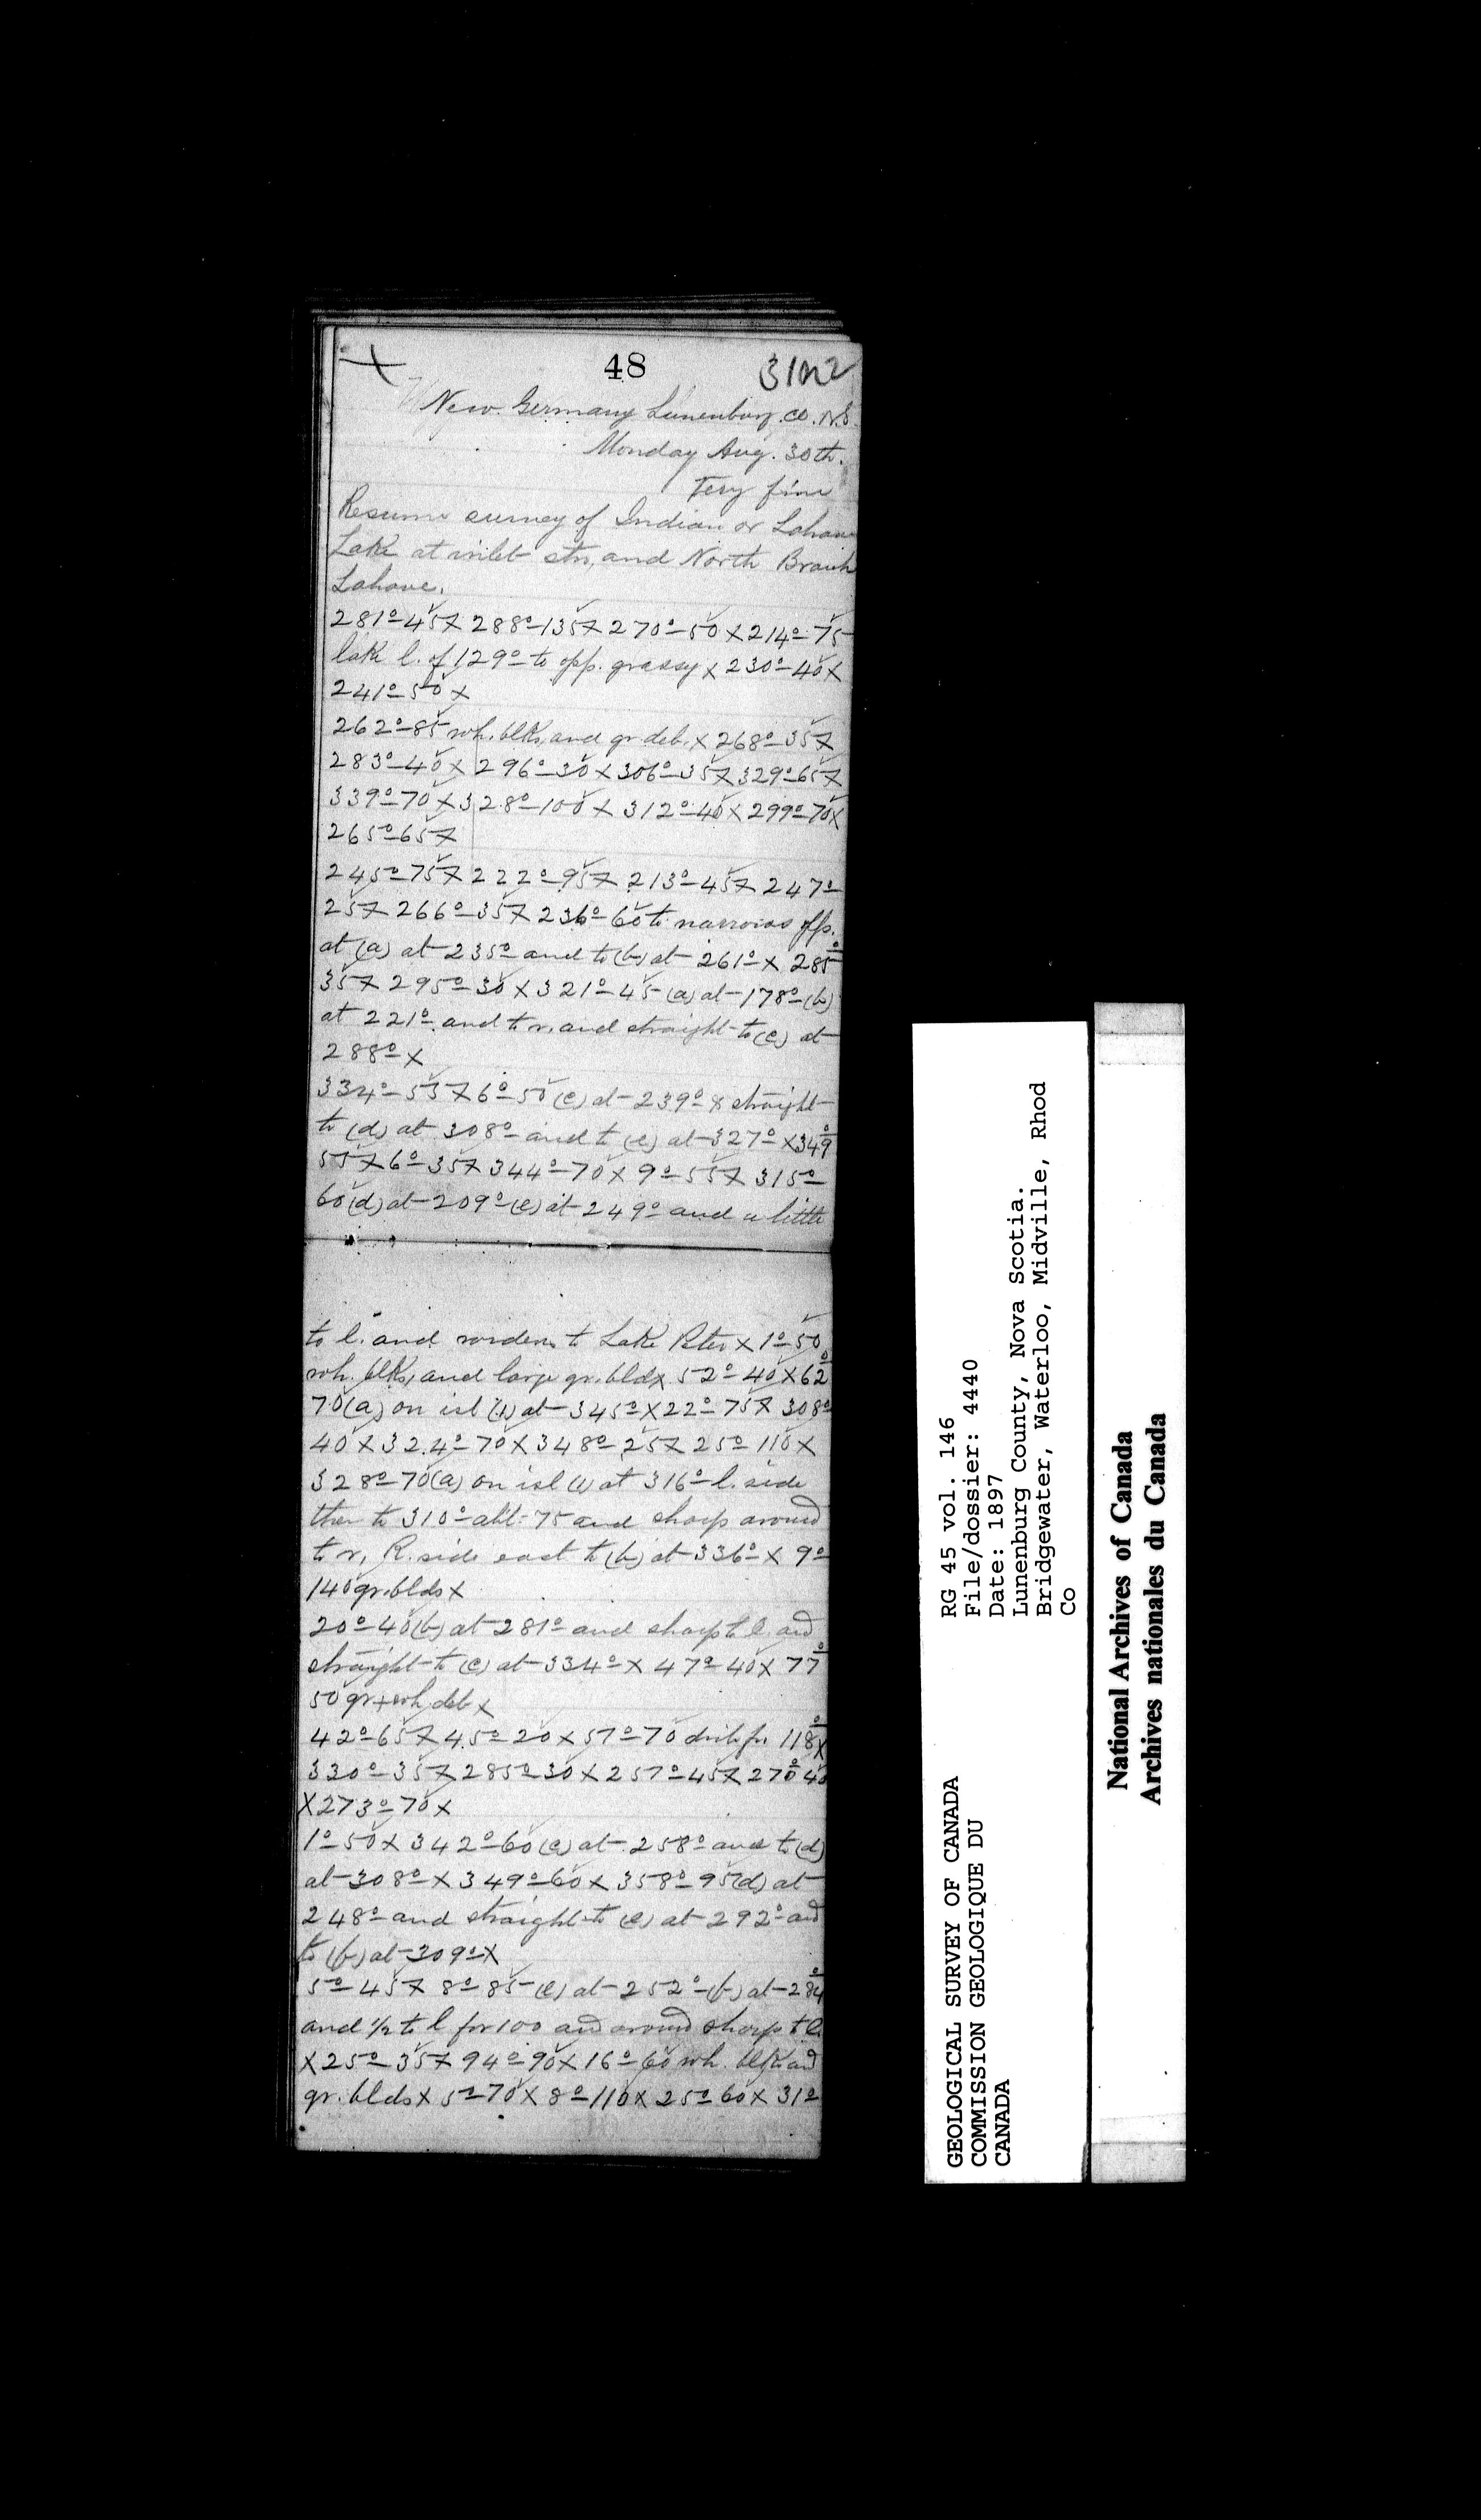 48
New Germany Lunenburg. Co. N.S.
Monday Aug. 30th.
Very fine
Resume survey of Indian or Lahave
Lake at inlet stn, and North Branch
Lahave.
281°-45 X 288°-135 X 270°-50 X 214°-75
lake l. of 129° to opp. grassy X 230°-40 X
241°-50 X
262°-85 wh. blks, and gr. deb. X 268°-35 X
283°-40 X 296°-30 X 306°-35 X 329°-65 X
339°-70 X 328°-100 X 312°-40 X 299°-70 X
265°-65 X
245°-75 X 222°-95 X 213°-45 X 247°
25 X 266°-35 X 236°-60 to narrows opp.
at (a) at 235° and to (b) at 261° X 285°
35 X 295°-30 X 321°-45 (a) at 178° (b)
at 221° and to r. and straight to (c) at
288° X
334°-55 X 6°-50 (c) at 239° & straight
to (d) at 308° and to (e) at 327° X 349°
55 X 6°-35 X 344°-70 X 9°-55 X 315°
60 (d) at 209° (e) at 249° and a little
to l. and to Lake Peter X 1°-50
wh. blks, and large gr. bld X 52°-40 X 62°
70 (a) on isl (1) at 345° X 22°-75 X 308°
40 X 324°-70 X 348°-25 X 25°-110 X
328°-70 (a) on isl (1) at 316° l. side
then to 310° abt. 75 and sharp around
to r, R. side east to (b) at 336° X 9°
140 gr. blds X
20°-40 (b) at 281° and sharp to l. and
straight to (c) at 334° X 47°-40 X 77°
50 gr + wh deb X
42°-65 X 45°-20 X 57°-70 118° X
330°-35 X 285°-30 X 257°-45 X 270°40
X 273°-70 X
1°-50 X 342°-60 (c) at 258° and to (d)
at 308° X 349°-60 X 358°-95 (d) at
248° and straight to (e) at 292° and
to (f) at 309° X
5°-45 X 8°-85 (e) at 252° (f) at 284°
and 1/2 to l for 100 and around sharp to l.
X 25°-35 X 94°-90 X 16°-60 wh. blk and
gr. blds X 5°-70 X 8°-110 X 25°60 X 31°
GEOLOGICAL SURVEY OF CANADA
COMMISSION GEOLOGIQUE DU
CANADA
RG 45 vol. 146
File/dossier: 4440
Date: 1897
Lunenburg County, Nova Scotia.
Bridgewater, Waterloo, Midville, Rhod
Co
National Archives of Canada
Archives nationales du Canada